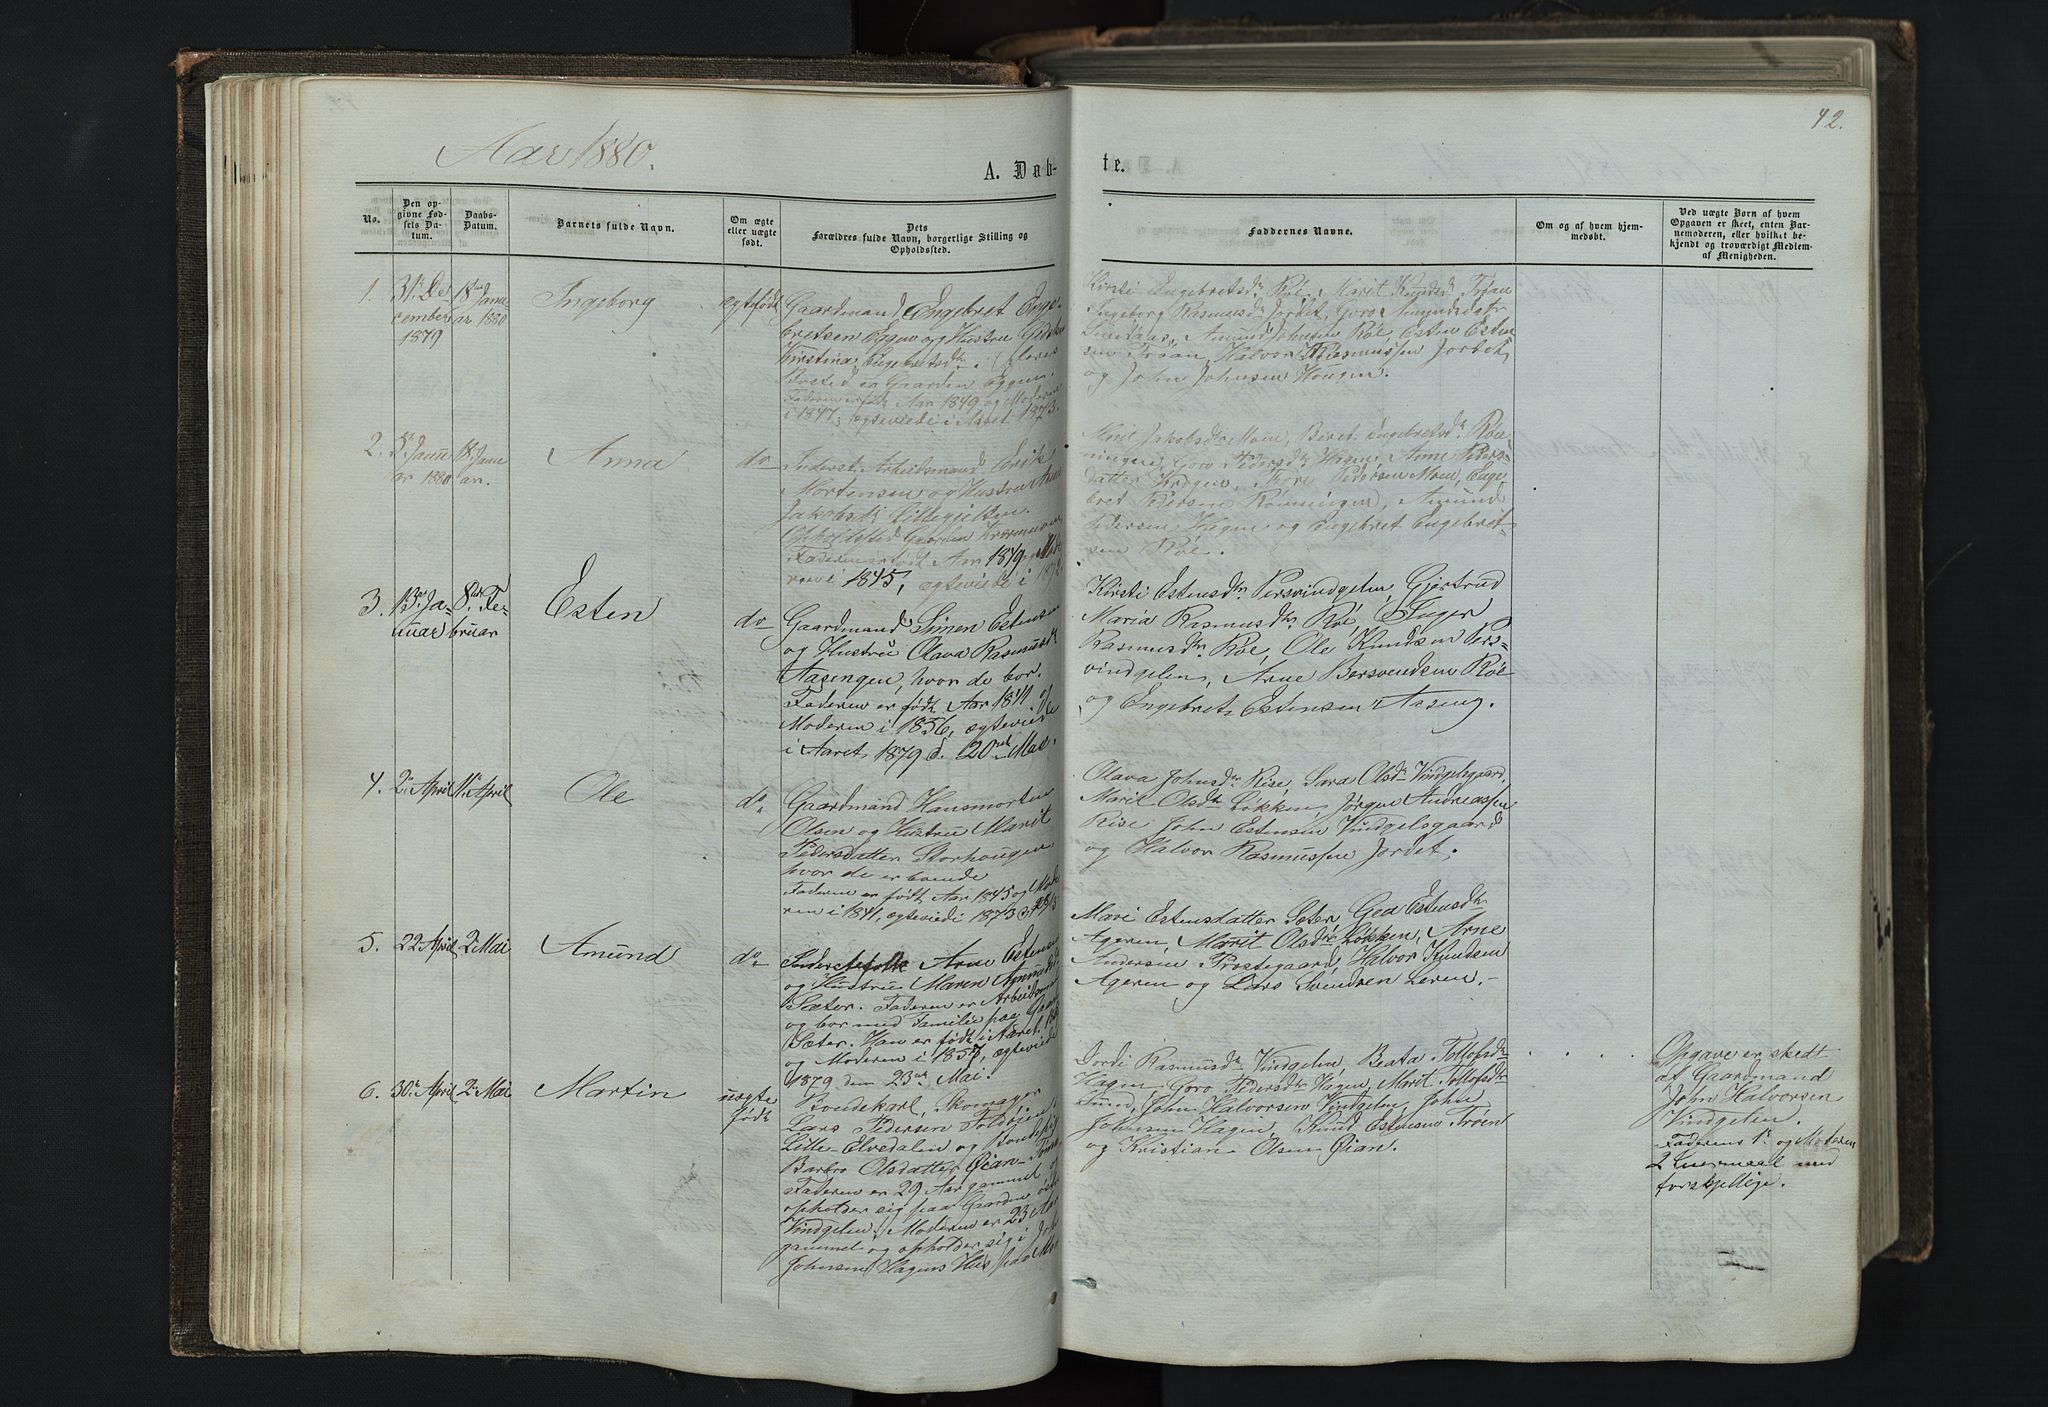 42.
Aar 1880.
A. Dab-
te.
No.
Den op-
givne Fød-
sels Da-
tum.
Daabs-
Datum.
Barnets fulde Navn.
Om ægte
eller uægte
født.
Dets
Forældres fulde Navn, borgerlige Stilling og
Opholdssted.
Faddernes Navne.
Om og af hvem hjem-
medøbt.
Ved uægte Børn af hvem
Opgaven er skeet, enten Bar-
nemoderen, eller hvilket be-
kjendt og troværdigt Medlem
af Menigheden.
1.
31. De-
cember
1879
18de Janu-
ar 1880
Ingeborg
ægtefødt
Gaardmand Engebret Enge-
bretsen Eggen og Hustru
Kirstina Engebretsdtr. (deres
Bosted er Gaarden Eggen.
Faderen er født Aar 1849 og Moderen
i 1847, egteviede i Aaret 1873.
Kirsti Engebretsdtr. Røe, Marit Knudsd. Trøan
Ingeborg Rasmusdtr Jordet, Goro Amundsdatr
Amund Johnsen Røe, Esten Esten-
sen Trøan, Halvor Rasmussen Jordet,
og John Johnsen Hougen.
2.
5te Janu-
ar 1880
18. Janu-
ar.
Anna
do
Inderst, Arbeidsmand Erik
Mortensen og Hustru Anne
Jakobsdt. Littlegjelten.
Opholdssted Gaarden
Faderen er født Aar 1849 og Mode-
ren i 1845, egteviede i
Jakobsdtr Moen, Beret Engebretsdtr. Røn-
ningen, Goro Pedersdtr. Hagen, Anne Peders-
datter Hagen, Tore Pedersen Moen, Enge-
bret Pedersen Rønningen, Amund
Pedersen Hagen og Engebret Engebret-
sen Røe.
3.
13de Ja-
nuar
8de Fe-
bruar
Esten
do
Gaardmand Simen Estensen
og Hustru Olava Rasmusdtr
Aasengen, hvor de bor.
Faderen er født Aar 1841 og
Moderen i 1856, egteviede
i Aaret 1879 d. 20de Mai.
Kirsti Estensdtr. Persvindgelen, Gjertrud
Maria Rasmusdtr. Røe, Inger
Rasmusdtr. Røe, Ole Knudsen Pers-
vindgelen, Arne Bersvendsen Røe
og Engebret Estensen Aaseng.
4.
2. April
11. April
Ole
do.
Gaardmand Hansmorten
Olsen og Hustru Marit
Pedersdatter Storhougen
hvor de er boende
Faderen er født Aar 1845 og Mode-
ren i 1841, egteviede i 1873
Olava Johnsdtr Rise, Sara Olsdtr Vindgelsgaard,
Marit Olsdtr Løkken, Jørgen Andreassen
Rise, John Estensen Vindgelsgaard,
og Halvor Rasmussen Jordet.
5.
22. April
2. Mai
Amund
do
Inderstfolk Arne Estensen
og Hustru Maren Amundsdtr
Sæter. Faderen er Arbeidsmand
og bor med Familie paa Gaarden
Sæter. Han er født i Aaret
og Moderen i 1857, egteviede
1879 den 23de Mai.
Mari Estensdatter Sæter, Gea Estensdtr
Ageren, Marit Olsdtr Løkken, Arne
Andersen Prestegaard, Halvor Knudsen
Ageren og Lars Svendsen Leren.
6.
30te April
2. Mai
Martin
uægte
født
Bondekarl, Skomager
Lars Pedersen Foldøien
Lille-Elvedalen og Bondepige
Barbro Olsdatter Øian-
Faderen er 29 Aar gammel og
opholder sig paa Gaarden
Vindgelen, Moderen er 23 Aar
gammel og opholder sig i John
Johnsen Hagens Hus paa
Jordi Rasmusdtr Vindgelen, Beata Tollofsdtr
Hagen, Goro Pedersdtr Hagen, Marit Tollofsdtr
Sund, John Halvorsen Vindgelen, John
Johnsen Hagen, Knud Estensen Trøen
og Kristian Olsen Øian.
Opgave er skedt
af Gaardmand
John Halvorsen
Vindgelen.
Faderens 1. og Moderen
2 Leiermaal med
forskjellige.